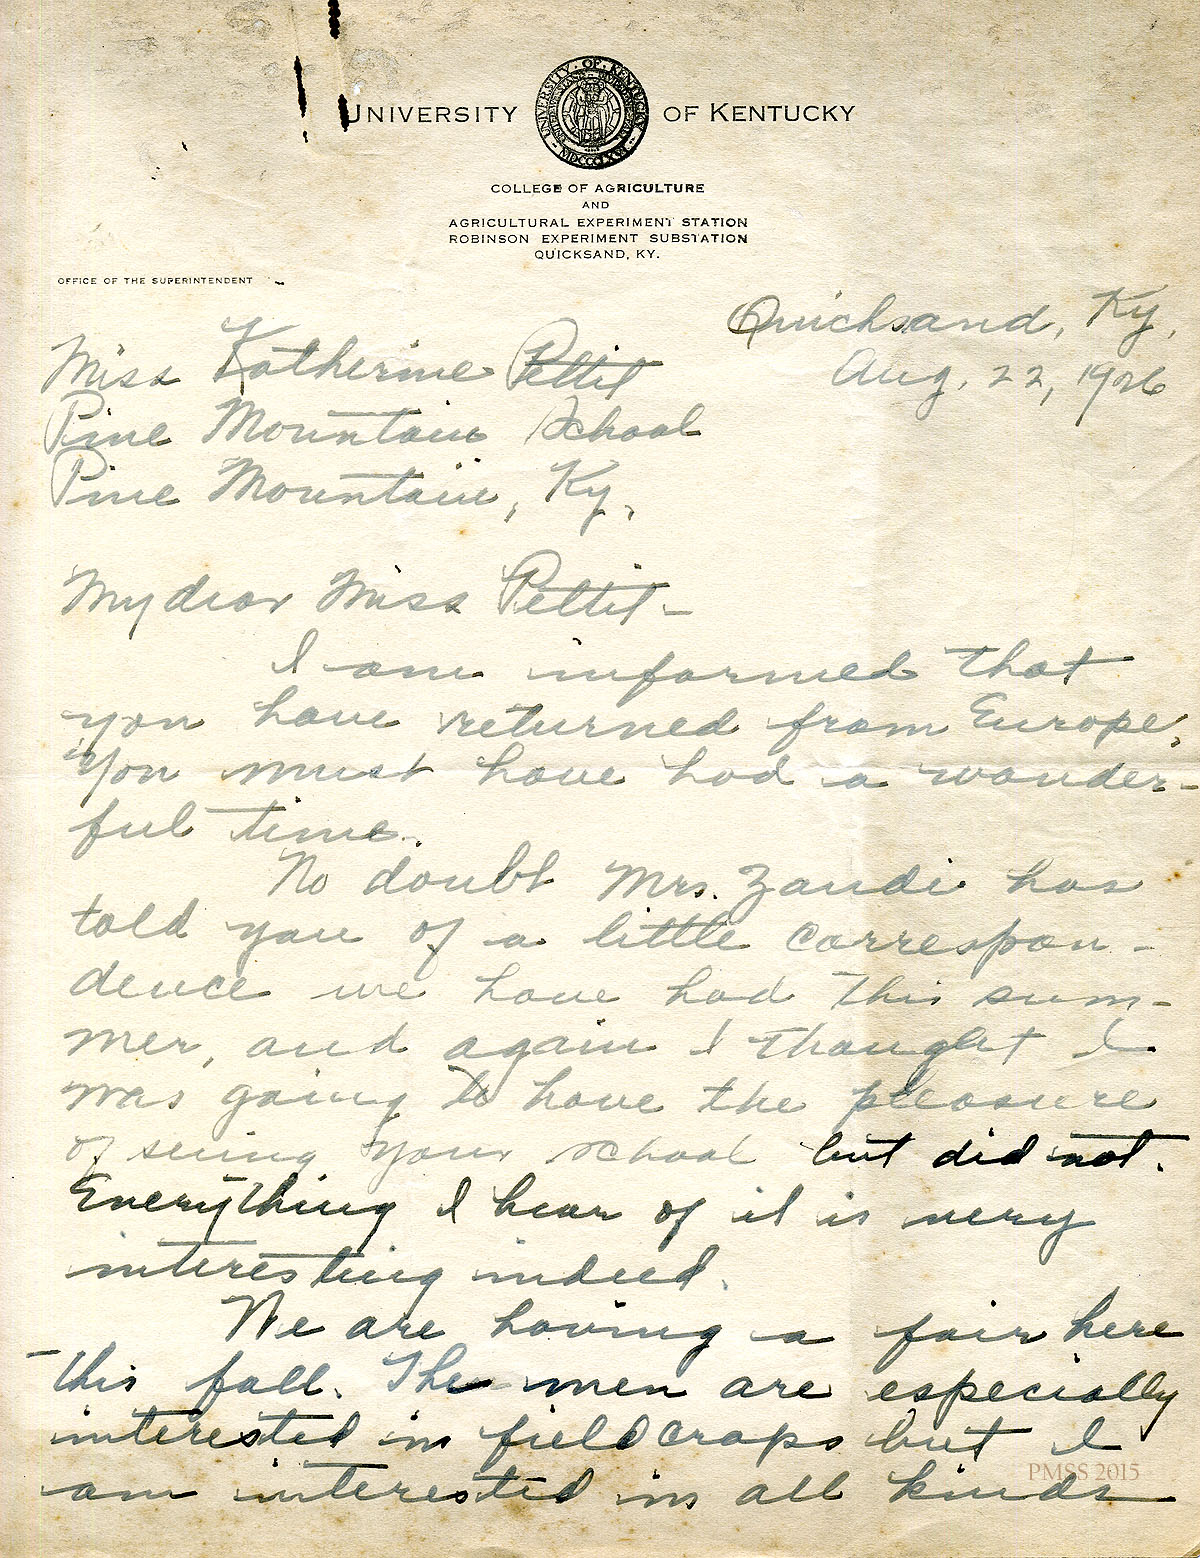 UNIVERSITY OF KENTUCKY
UNIVERSITY OF KENTUCKY
MDCCCLXV
COLLEGE OF AGRICULTURE
AND
AGRICULTURAL EXPERIMENT STATION
ROBINSON EXPERIMENT SUBSTATION
QUICKSAND, KY.
OFFICE OF THE SUPERINTENDENT
Quicksand, Ky,
Aug. 22, 1926
Miss Katherine Pettit
Pine Mountain School
Pine Mountain, Ky,
My dear Miss Pettit-
I am informed that
you have returned from Europe.
You must have had a wonder-
ful time.
No doubt Mrs. Zande has
told you of a little correspon-
dence we have had this sum-
mer, and again I thought I
was going to have the pleasure
of seeing your school but did not.
Everything I hear of it is very
interesting indeed.
We are having a fair here
this fall. The men are especially
interested in field crops but I
am interested in all kinds
PMSS 2015